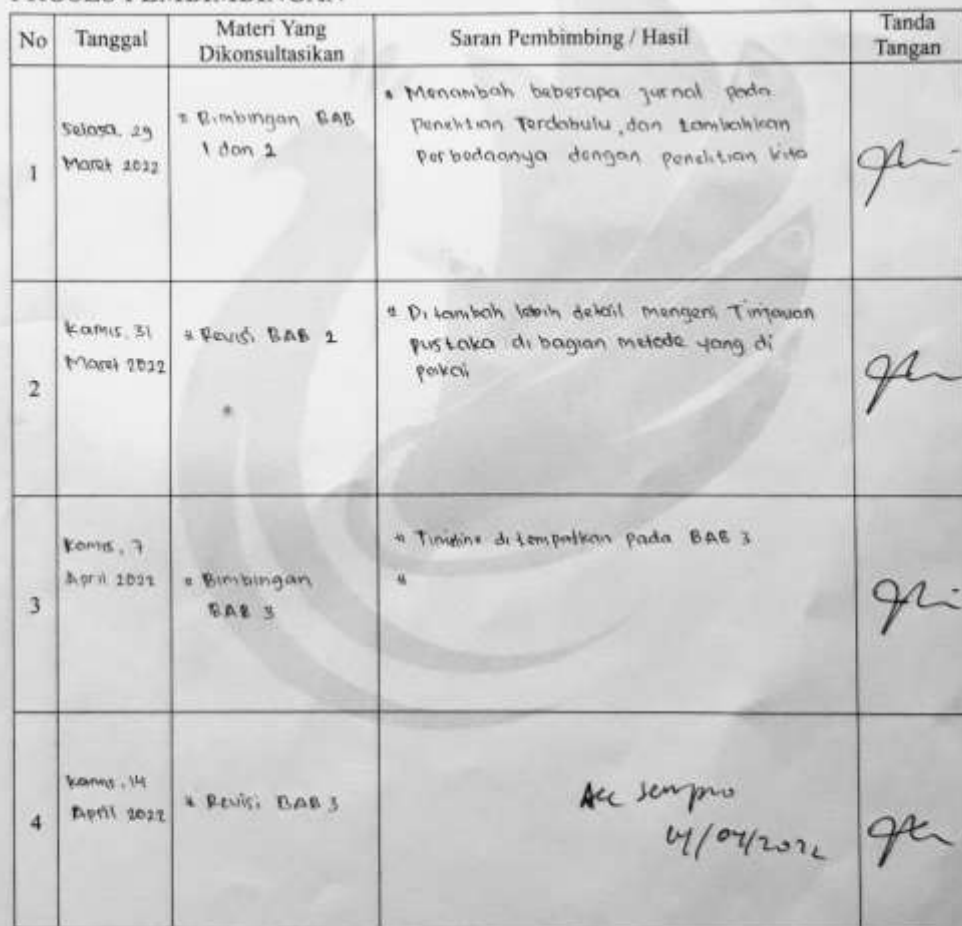 No Tanggal Materi Yang Dikonsultasikan Saran Pembimbing / Hasil Tanda Tangan
1
Selasa, 29
Maret 2022
* Bimbingan BAB
1 dan 2
* Menambah beberapa jurnal pada
Penelitian Terdahulu, dan tambahkan
Perbedaanya dengan penelitian kita
2
Kamis, 31
Maret 2022
* Revisi BAB 2
*
* Di tambah lebih detail mengeni Tinjauan
pustaka di bagian metode yang di
pakai
3
Kamis, 7
April 2022
* Bimbingan
BAB 3
* Timeline di tempatkan pada BAB 3
*
4
Kamis, 14
April 2022
* Revisi BAB 3
Acc sempro
14/04/2022